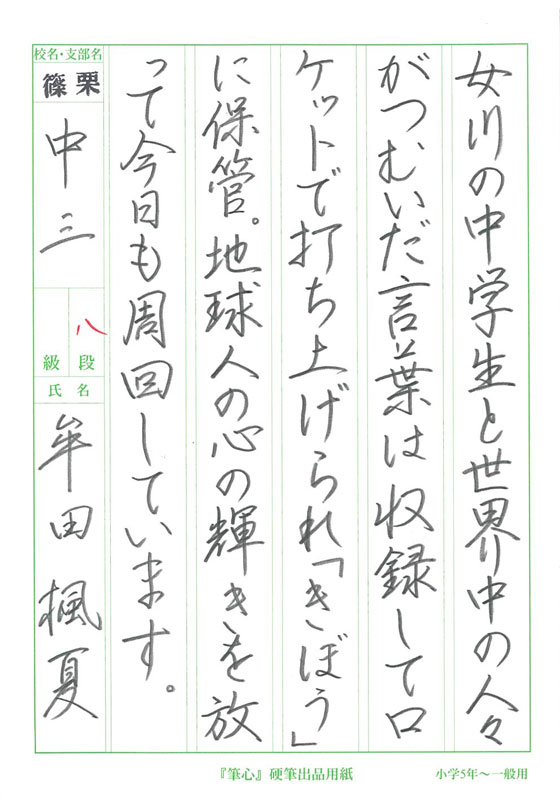 女川の中学生と世界中の人々
がつむいだ言葉は収録してロ
ケットで打ち上げられ「きぼう」
に保管。地球人の心の輝きを放
って今日も周回しています。
校名・支部名
篠栗
中三
八
段
級
氏名
牟田楓夏
『筆心』硬筆出品用紙
小学5年〜一般用